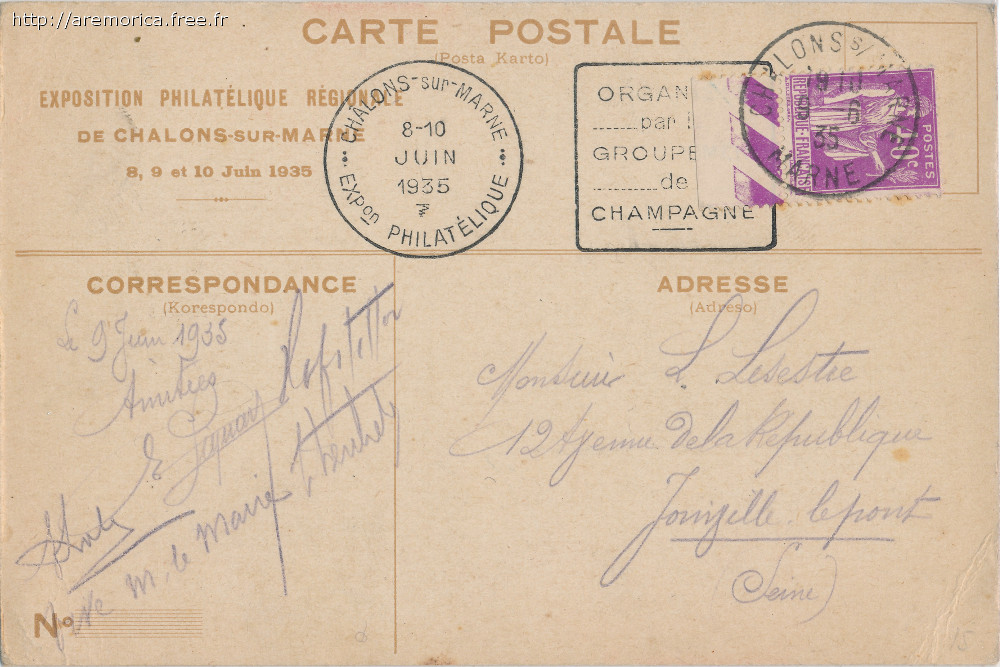 http://aremorica.free.fr
CARTE POSTALE
(Posta Karto)
EXPOSITION PHILATÉLIQUE RÉGIONALE
DE CHALONS-SUR-MARNE
8, 9 et 10 Juin 1935
CHALONS-sur-MARNE
8-10
JUIN
1935
EXPon PHILATÉLIQUE
ORGAN
par l
GROUPE
de
CHAMPAGNE
CHALONS s/ MARNE
35
MARNE
REPUBLIQUE-FRANÇAISE
POSTES
CORRESPONDANCE
(Korespondo)
Le 9 Juin 1935
Amitiés
M. le Maire
No
ADRESSE
(Adreso)
Monsieur L. Lesestre
12 Avenue de la République
Joinville-le-pont
(Seine)
15